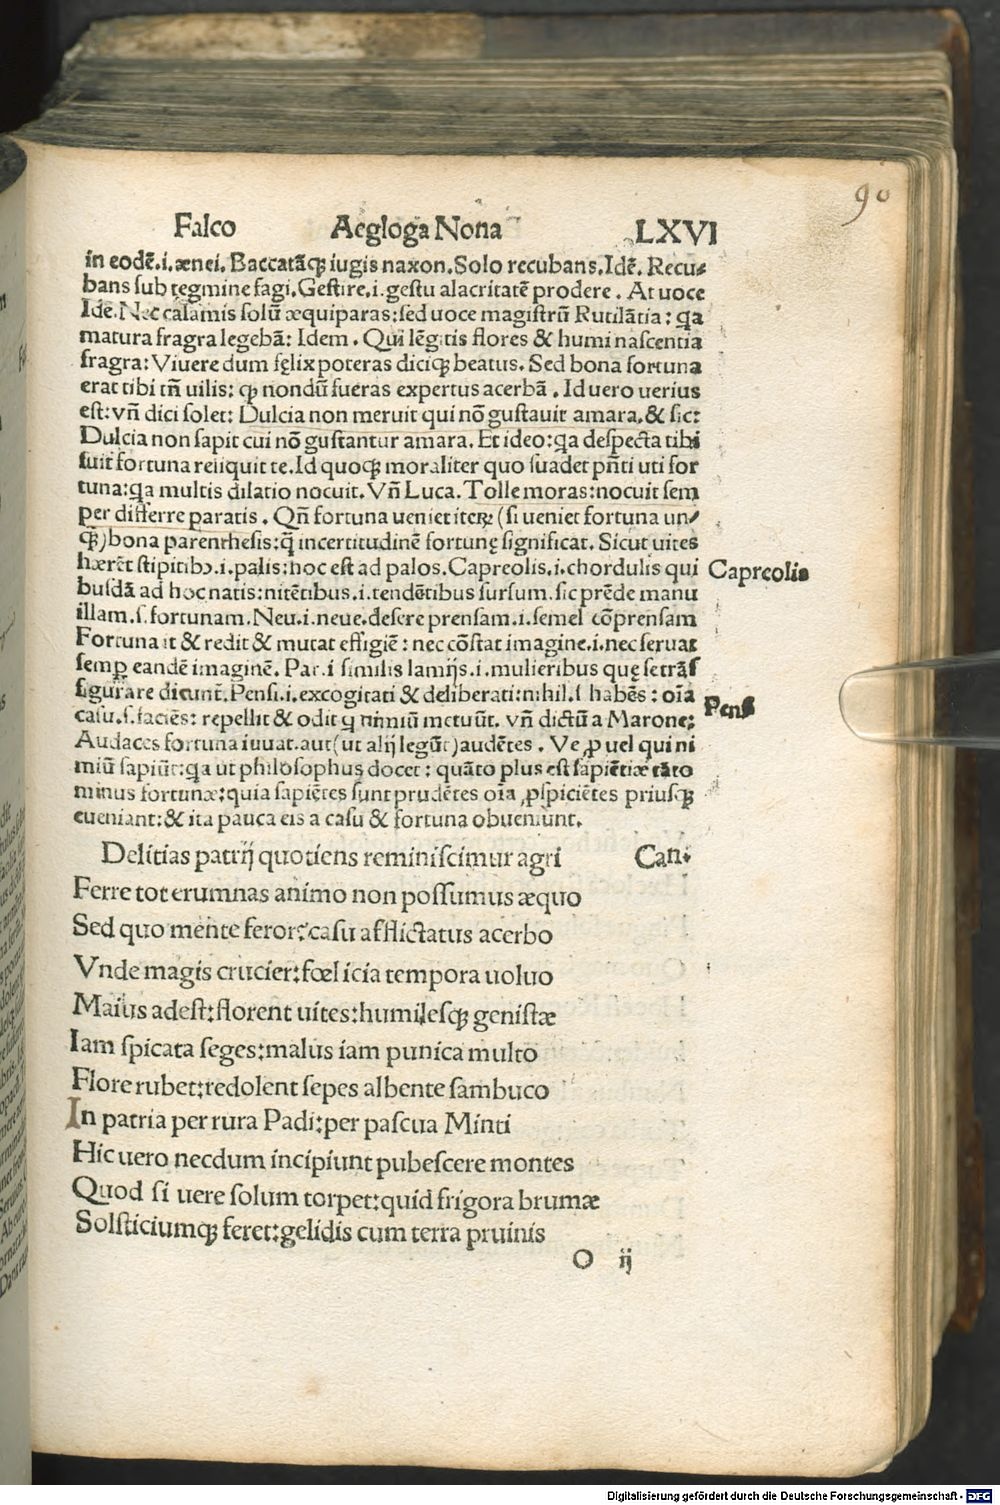 90
Falco Aegloga Nona LXVI
in eodē.i.ænei. Baccatāq; iugis naxon. Solo recubans. Idē. Recu-
bans sub tegmine fagi. Gestire.i. gestu alacritatē prodere. At uoce
Idē. Nec calamis solū æquiparas: sed uoce magistrū Rutilātia: qa
matura fragra legebā: Idem. Qui lēgitis flores & humi nascentia
fragra: Viuere dum fęlix poteras diciq; beatus. Sed bona fortuna
erat tibi tñ uilis: q; nondū fueras expertus acerbā. Id uero uerius
est: vñ dici solet: Dulcia non meruit qui nō gustauit amara. & sic:
Dulcia non sapit cui nō gustantur amara. Et ideo: qa despecta tibi
fuit fortuna reliquit te. Id quoq; moraliter quo suadet pñti uti for
tuna: qa multis dilatio nocuit. Vñ Luca. Tolle moras: nocuit sem
per differre paratis. Qñ fortuna ueniet iteꝝ (si ueniet fortuna un-
q;) bona parenthesis: q̄ incertitudinē fortunę significat. Sicut uites
hærēt stipitibꝰ.i. palis: hoc est ad palos. Capreolis.i. chordulis qui
Capreolis
busdā ad hoc natis: nitētibus.i. tendētibus sursum. sic prēde manu
illam.s. fortunam. Neu.i. neue. desere prensam.i. semel cōprensam
Fortuna it & redit & mutat effigiē: nec cōstat imagine.i. nec seruat
semꝑ eandē imaginē. Par.i similis lamijs.i. mulieribus quę se trāsf
figurare dicunt. Pensi.i. excogitati & deliberati: nihil.s habēs: oīa
Pensi
casu.s. faciēs: repellit & odit q nimiū metuūt. vñ dictū a Marone:
Audaces fortuna iuuat. aut (ut alij legūt) audētes. Ve ꝓ uel qui ni
miū sapiūt: qa ut philosophus docet: quāto plus est sapiētiæ tāto
minus fortunæ: quia sapiētes sunt prudētes oīa ꝑspiciētes priusq;
eueniant: & ita pauca eis a casu & fortuna obueniunt.
Delitias patrij quotiens reminiscimur agri Can.
Ferre tot erumnas animo non possumus æquo
Sed quo mente feror: casu afflictatus acerbo
Vnde magis crucier: fœlicia tempora uoluo
Maius adest: florent uites: humilesq; genistæ
Iam spicata seges: malus iam punica multo
Flore rubet: redolent sepes albente sambuco
In patria per rura Padi: per pascua Minti
Hic uero necdum incipiunt pubescere montes
Quod si uere solum torpet: quid frigora brumæ
Solsticiumq; feret: gelidis cum terra pruinis
O ij
Digitalisierung gefördert durch die Deutsche Forschungsgemeinschaft - DFG